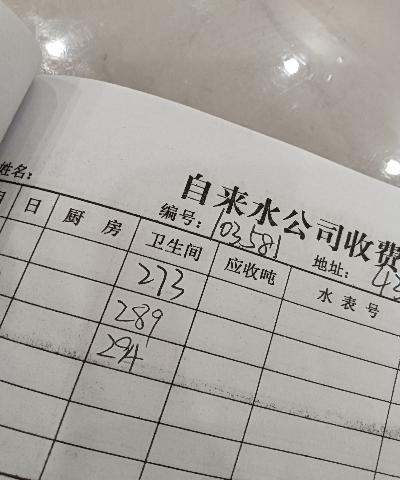 自来水公司收费
姓名: 编号: 03581 地址: 43
月 日 厨房 卫生间 应收吨 水表号
273
289
294